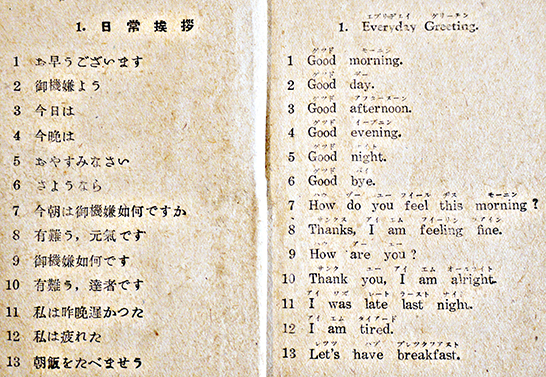 1. 日常挨拶
1 お早うございます
2 御機嫌よう
3 今日は
4 今晩は
5 おやすみなさい
6 さようなら
7 今朝は御機嫌如何ですか
8 有難う，元氣です
9 御機嫌如何です
10 有難う，達者です
11 私は昨晩遅かつた
12 私は疲れた
13 朝飯をたべませう
エブリデェイ グリーチン
1. Everyday Greeting.
グツド モーニン
1 Good morning.
グツド デー
2 Good day.
グツド アフタヌーン
3 Good afternoon.
グツド イーブニン
4 Good evening.
グツド ナイト
5 Good night.
グツド バイ
6 Good bye.
ハウ ヅー ユー フイール ヂス モーニン
7 How do you feel this morning?
サンクス アイ エム フイーリン フアイン
8 Thanks, I am feeling fine.
ハウ アー ユー
9 How are you?
サンク ユー アイ エム オールライト
10 Thank you, I am alright.
アイ ワズ レート ラースト ナイト
11 I was late last night.
アイ エム タイアード
12 I am tired.
レツツ ハブ ブレツクフアスト
13 Let's have breakfast.